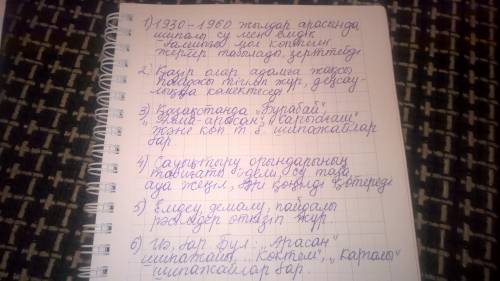 1) 1930-1960 жылдар арасында
шипалы су мен емдік
балшығы мол көптеген
жерлер табылады, зерттелді
2) Қазір олар адамға жақсы
пайдасы тигізіп жүр, денсау-
лыққа көмектеседі
3) Қазақстанда "Бурабай",
"Алма-арасан", "Сарыағаш"
және көп т.б шипажайлар
бар.
4) Сауықтыру орындарының
табиғаты әдемі, су таза
ауа жеңіл, көңілді көтереді
5) Емдеу, демалу, пайдалы
рәсімдер өткізіп жүр
6) Иә, бар Бұл: "Арасан"
шипажайы, "Көктем", "Қапалы"
шипажайлар бар.